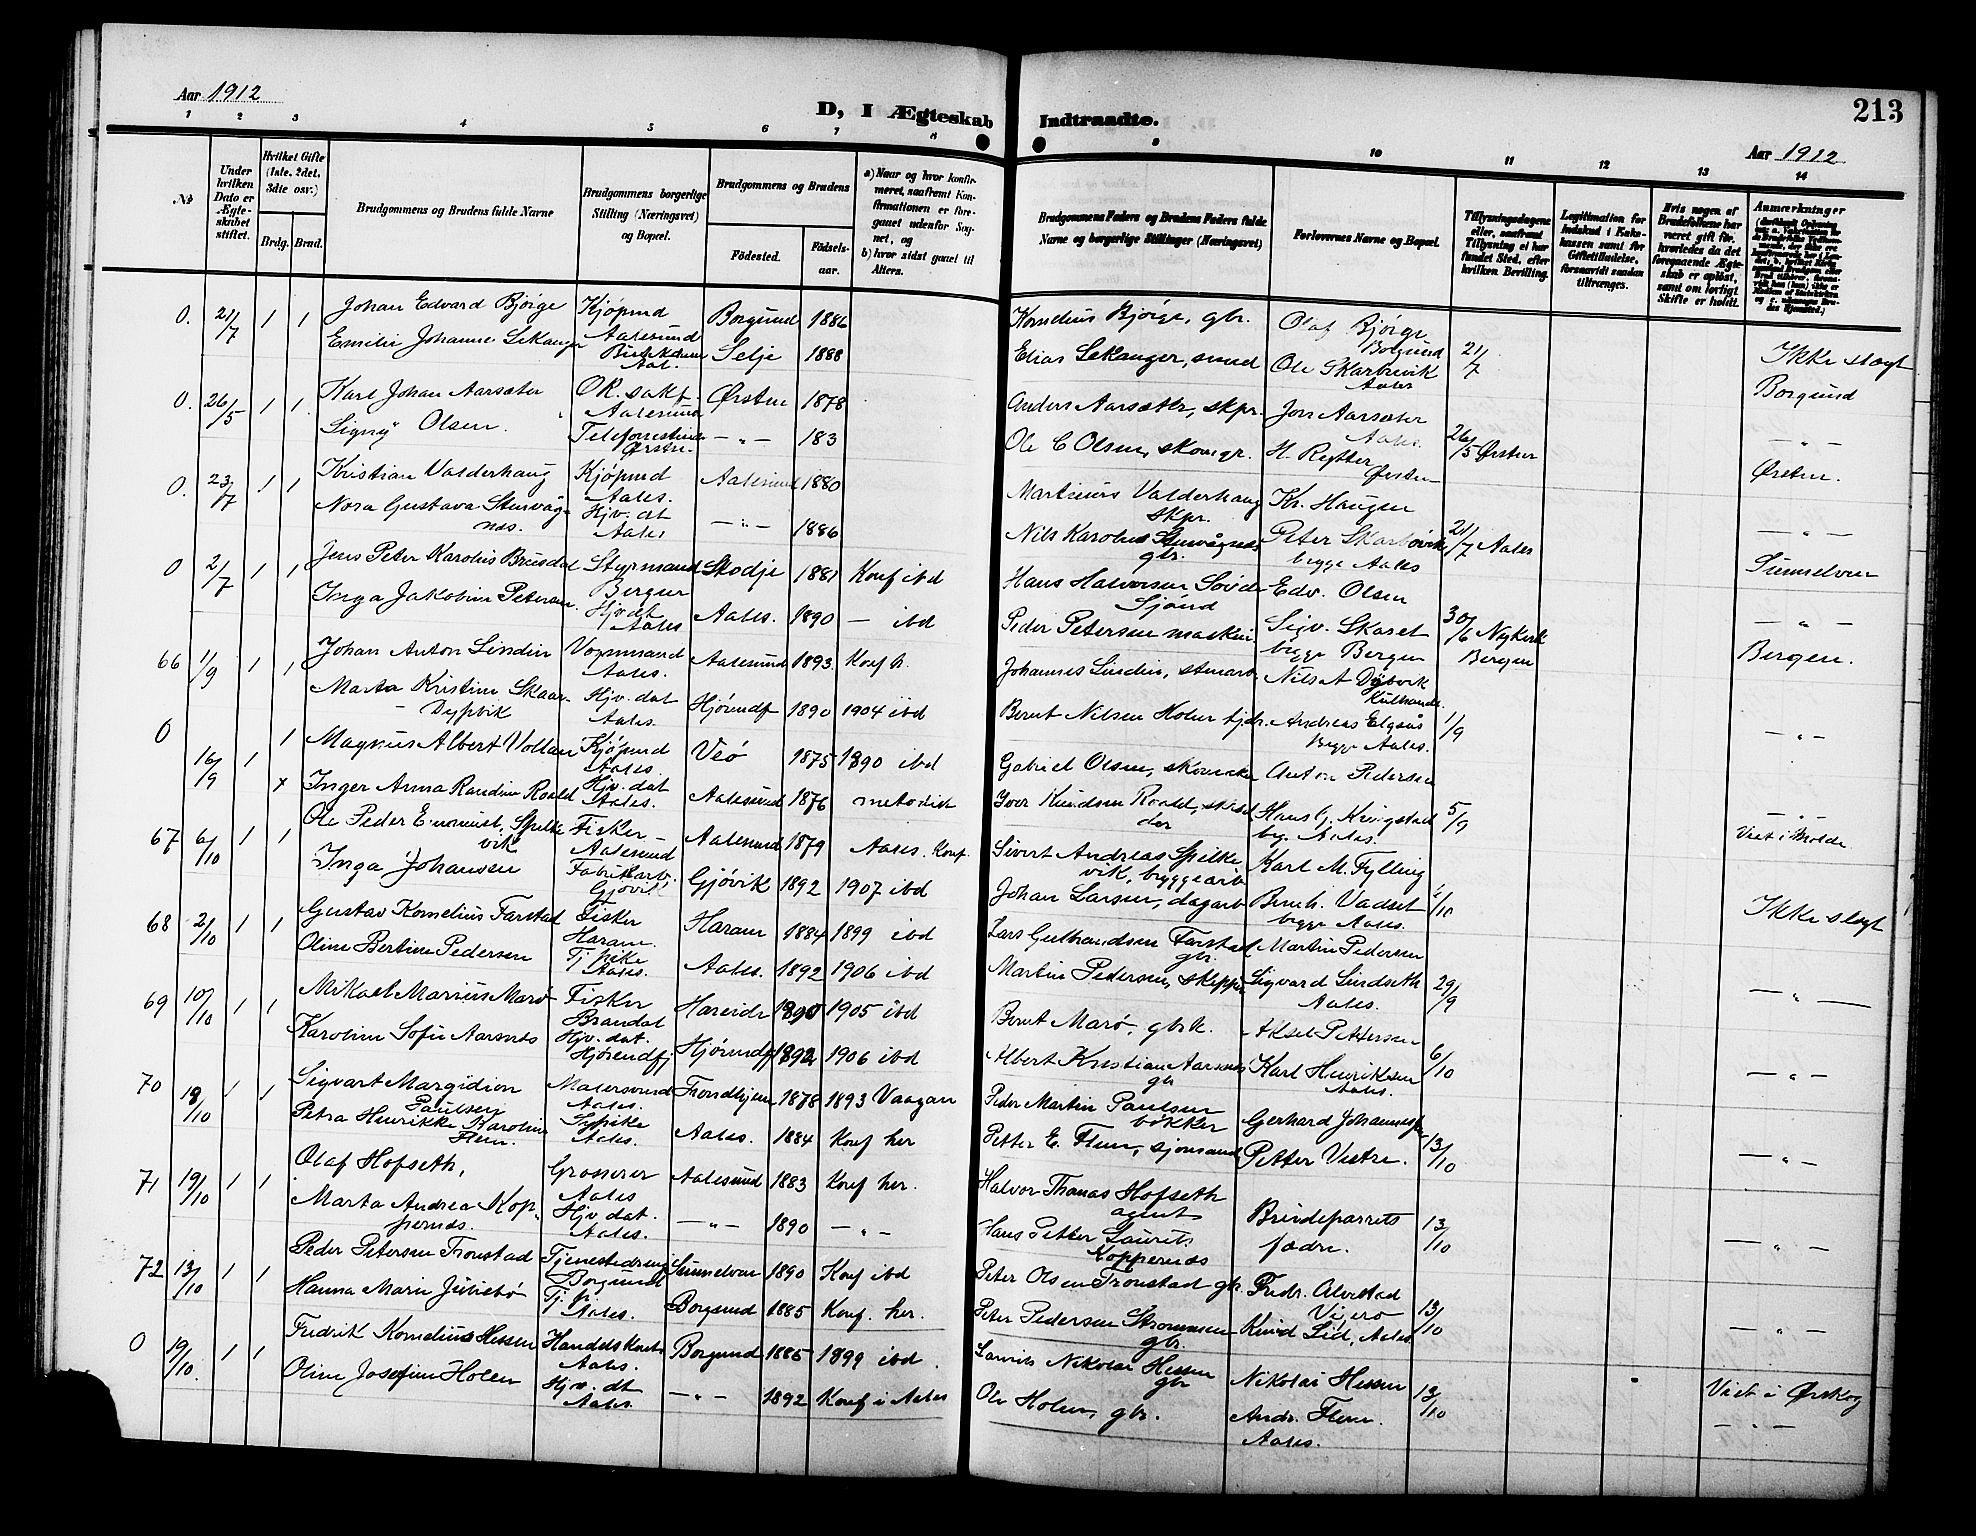 213
Aar 1912
D, I Ægteskab Indtraadte.
Aar 1912
1 2 3 4 5 6 7 8 9 10 11 12 13 14
No
Under hvilken Dato er Ægteskabet stiftet.
Hvilket Gifte (1ste, 2det, 3die osv.)
Brdg. Brud.
Brudgommens og Brudens fulde Navne
Brudgommens borgerlige Stilling (Næringsvei) og Bopæl.
Brudgommens og Brudens
Fødested. Fødsels-aar.
a) Naar og hvor konfirmeret, saafremt Konfirmationen er foregaaet udenfor Sognet, og
b) hvor sidst gaaet til Alters.
Brudgommens Faders og Brudens Faders fulde Navne og borgerlige Stillinger (Næringsvei)
Forlovernes Navne og Bopæl.
Tillysningsdagene eller, saafremt Tillysning ei har fundet Sted, efter hvilken Bevilling.
Legitimation for Indskud i Enkekassen samt for Giftetilladelse, forsaavidt saadan tiltrænges.
Hvis nogen af Brudefolkene har været gift før, hvorledes da det foregaaende Ægteskab er opløst, samt om lovligt Skifte er holdt.
Anmærkninger
0. 21/7 1 1 Johan Edvard Bjørge Kjøpmd Aalesund Borgund 1886 Kornelius Bjørge, gbr. Olaf Bjørge Borgund 21/7 Ikke slegt
Emilie Johanne Sekanger Aal. Selje 1888 Elias Sekanger, smed Ole Skarbøvik Aales Borgund
0. 26/5 1 1 Karl Johan Aarsæter OR. sakf. Aalesund Ørsten 1878 Anders Aarsæter, skpr. Jon Aarsæter Aales. 26/5 Ørsten — " —
Signy Olsen. Ørsten. — " — 183 Ole C Olsen, skomgr. Ørsten Ørsten.
0. 23/7 1 1 Kristian Valderhaug Kjøpmd Aales. Aalesund 1880 Martinus Valderhaug skpr. Kr. Haugen 21/7 Aales — " —
Nora Gustava Stenvåg-nes. Hjv. dt Aales — " — 1886 Nils Karolus Stenvågnes gbr. Peter Skarbøvik begge Aales Sunnelven
0 2/7 1 1 Jens Peter Karolus Brusdal Styrmand Bergen Skodje 1881 Konf ibd Hans Halvorsen Edv. Olsen 30/6 Nykirk Bergen — " —
Inga Jakobine Petersen. Hjv dt Aales Aales. 1890 — ibd Peder Petersen maskin Sigv. Skaset begge Bergen Bergen.
66 1/9 1 1 Johan Anton Lindin Vognmand Aales. Aalesund 1893. Konf h. Johannes Lindin, stenarb Nils A Dybvik 1/9 — " —
Marta Kristine Skaar-Dypvik Hjv. dat Aales. Hjørendf 1890 1904 ibd Bernt Nilsen Holen tjdr. Andreas Elgsås Begge Aales.
0 16/9 1 1 Magnus Albert Vollan Kjøpmd Aales. Veø 1875 1890 ibd Gabriel Olsen, skomaker Anton Pedersen 5/9 — " —
x Inger Anna Randine Roald Hjv. dat Aales. Aalesund 1876 metodist Iver Knudsen Roald, Hans G. Ringstad beg. Aales. Viet i Molde.
67 6/10 1 1 Ole Peder Emanuel Spilkevik Fisker - Aalesund Aalesund 1879 Aales. Konf. Sivert Andreas Spilkevik, byggearb Karl M. Fylling 6/10 Ikke slegt
Inga Johansen Fabrikarb. Gjøvik Gjøvik 1892 1907 ibd Johan Larsen, dagarb Bernh. Vadset begge Aales.
68 2/10 1 1 Gustav Kornelius Farstad Fisker Haram. Haram 1884 1899 ibd Lars Gulbrandsen Farstad gbr. Martin Pedersen 29/9 — " —
Oline Bertine Pedersen Tj. pike Aales. Aales. 1892 1906 ibd Martin Pedersen, skipper Sigvard Lindseth Aales.
69 10/10 1 1 Mikael Marius Marø Fisker Brandal Hareide 1890 1905 ibd Bernt Marø, gbrk. Aksel Pettersen 6/10 — " —
Karoline Sofie Aarsnes Hjv. dat. Hjørendfj Hjørendfj 1892 1906 ibd Albert Kristian Aarsnes gbr Karl Henriksen Aales.
70 18/10 1 1 Sigvart Margidion Paulsen Malersvend Aales. Trondhjem 1878 1893 Vaagan Peder Martin Paulsen bøkker Gerhard Johannesen 13/10 — " —
Petra Henrikke Karoline Flem. Sypike Aales. Aales. 1884 Konf her Petter E. Flem, sjømand Petter Vestre.
71 19/10 1 1 Olaf Hofseth, Grosserer Aales Aalesund 1883 Konf her. Halvor Thomas Hofseth agent Brudeparrets fædre. 13/10 — " —
Marta Andrea Kop-pernæs. Hjv dat. Aales. — " — 1890 — " — Hans Petter Laurits Koppernæs
72 13/10 1 1 Peder Petersen Tronstad Tjenestedreng Borgund Sunnelven 1890 Konf ibd Peter Olsen Tronstad gbr. Fredr. Alvestad Vigero 13/10 — " —
Hanna Marie Juliebø Tj. p. Aales. Borgund 1885 Konf. her. Peter Pedersen Strømmen gbr. Knud Lid, Aales
0 19/10 1 1 Fredrik Kornelius Hessen Handelskont. Aales. Borgund 1885 1899 ibd. Laurits Nikolai Hessen gbr Nikolai Hessen 13/10 Viet i Ørskog
Oline Josefine Holen Hjv. dt Aales. — " — 1892 Konf i Aales Ole Holen, gbr. Andr. Flem. Aales. — " —